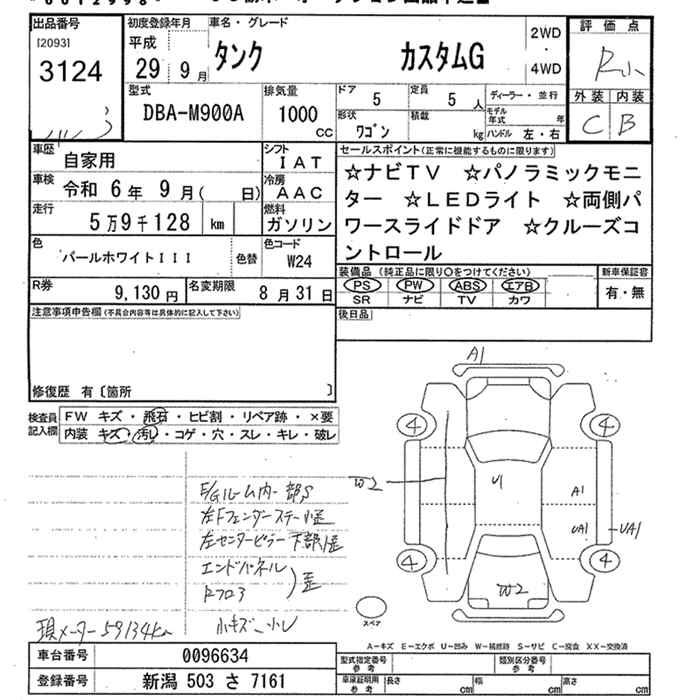 出品番号 初度登録年月 車名・グレード 2WD 評価点
[2093] 平成 タンク カスタムG ・ R小
3124 29 9月 4WD 外装 内装
型式 排気量 ドア 定員 ディーラー・並行 C B
DBA-M900A 1000 5 5人 モデル年式 年
cc 形状 ワゴン 積載 kg ハンドル 左・右
車歴 自家用 シフト IAT セールスポイント(正常に機能するものに限ります)
車検 令和 6年 9月( 日) 冷房 AAC ☆ナビTV ☆パノラミックモニ
走行 5万9千128 km 燃料 ガソリン ター ☆LEDライト ☆両側パ
色 色替 色コード ワースライドドア ☆クルーズコ
パールホワイトIII W24 ントロール
R券 9,130円 名変期限 8月31日 装備品 (純正品に限り○をつけてください) 新車保証書
PS PW ABS エアB 有・無
SR ナビ TV カワ
注意事項申告欄(不具合内容等は具体的に記入して下さい) 後日品
修復歴 有〔箇所 〕
検査員 FW キズ・飛石・ヒビ割・リペア跡・×要
記入欄 内装 キズ・汚し・コゲ・穴・スレ・キレ・破レ
A1
4 4
W2 U1 A1
UA1 UA1
4 4
W2
スペア
E/Gルーム内一部S
左Fフェンダーステー小歪
左センターピラー下部歪
エンドパネル
Rフロア 歪
小キズ、小凹
現メーター59134km
A-キズ E-エクボ U-凹み W-補修跡 S-サビ C-腐食 XX-交換済
車台番号 0096634 型式指定番号 参考 類別区分番号 参考
登録番号 新潟 503 さ 7161 車庫証明用 参考 長さ cm 幅 cm 高さ cm